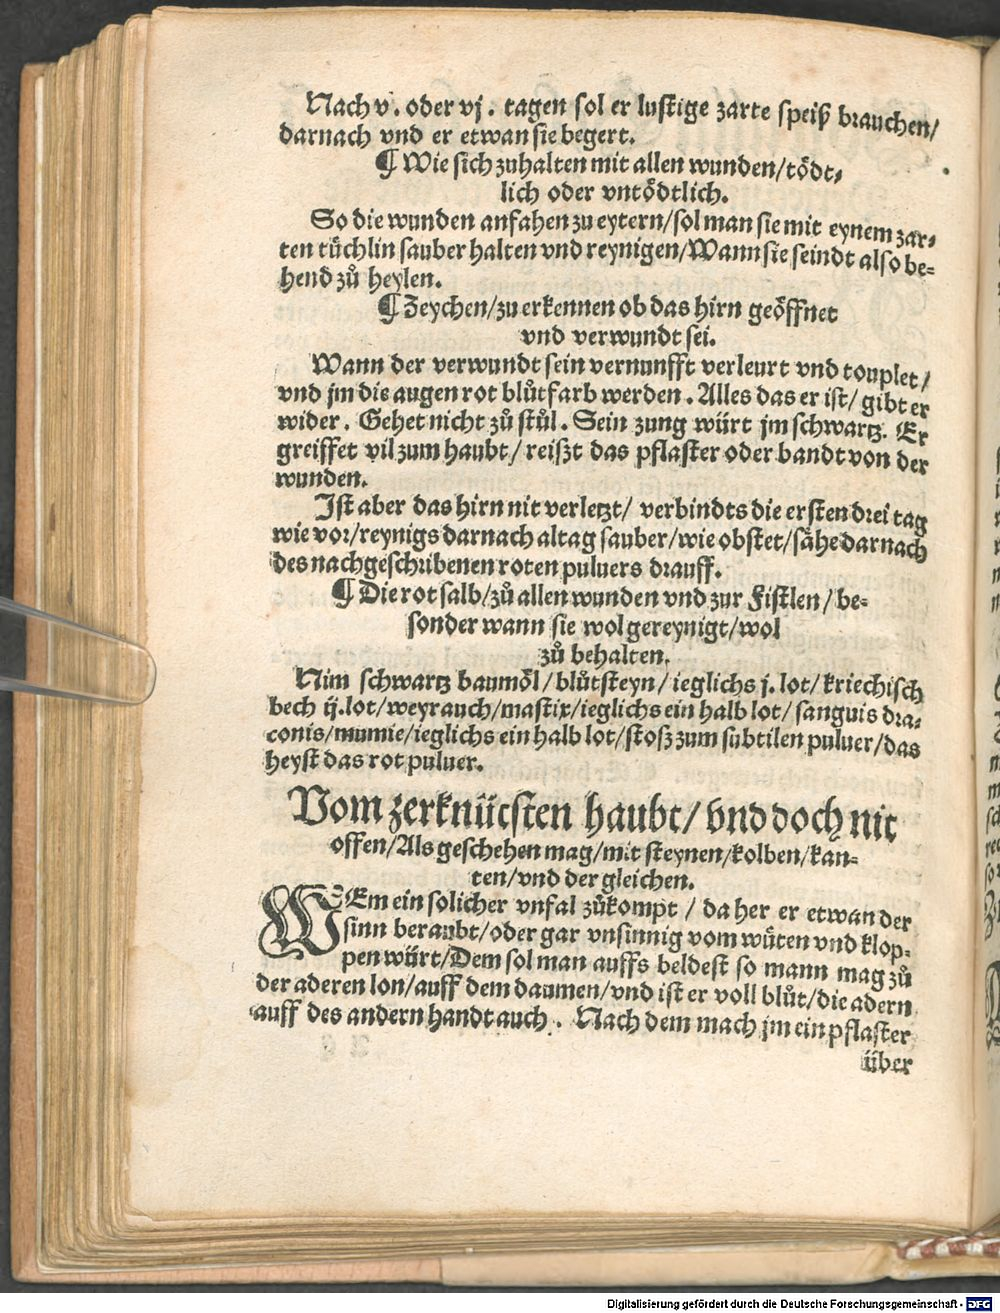 Nach v. oder vj. tagen sol er lustige zarte speiß brauchen/
darnach vnd er etwan sie begert.
¶ Wie sich zuhalten mit allen wunden/tödt⸗
lich oder vntödtlich.
So die wunden anfahen zu eytern/sol man sie mit eynem zar⸗
ten tüchlin sauber halten vnd reynigen/Wann sie seindt also be⸗
hend zů heylen.
¶ Zeychen/zu erkennen ob das hirn geöffnet
vnd verwundt sei.
Wann der verwundt sein vernunfft verleurt vnd touplet/
vnd jm die augen rot blůtfarb werden. Alles das er ist/gibt er
wider. Gehet nicht zů stůl. Sein zung würt jm schwartz. Er
greiffet vil zum haubt/reißt das pflaster oder bandt von der
wunden.
Ist aber das hirn nit verletzt/ verbindts die ersten drei tag
wie vor/reynigs darnach altag sauber/wie obstet/sähe darnach
des nachgeschribenen roten puluers drauff.
¶ Die rot salb/zů allen wunden vnd zur Fistlen/be⸗
sonder wann sie wol gereynigt/wol
zů behalten.
Nim schwartz baumöl/blůtsteyn/ieglichs j. lot/kriechisch
bech ij. lot/weyrauch/mastix/ieglichs ein halb lot/sanguis dra⸗
conis/mumie/ieglichs ein halb lot/stoß zum subtilen puluer/das
heyst das rot puluer.
Vom zerknütsten haubt/vnd doch nit
offen/Als geschehen mag/mit steynen/kolben/kan⸗
ten/vnd der gleichen.
WEm ein solicher vnfal zůkompt/da her er etwan der
sinn beraubt/oder gar vnsinnig vom wüten vnd klop⸗
pen würt/Dem sol man auffs beldest so mann mag zů
der aderen lon/auff dem daumen/vnd ist er voll blůt/die adern
auff des andern handt auch. Nach dem mach jm ein pflaster
über
Digitalisierung gefördert durch die Deutsche Forschungsgemeinschaft - DFG